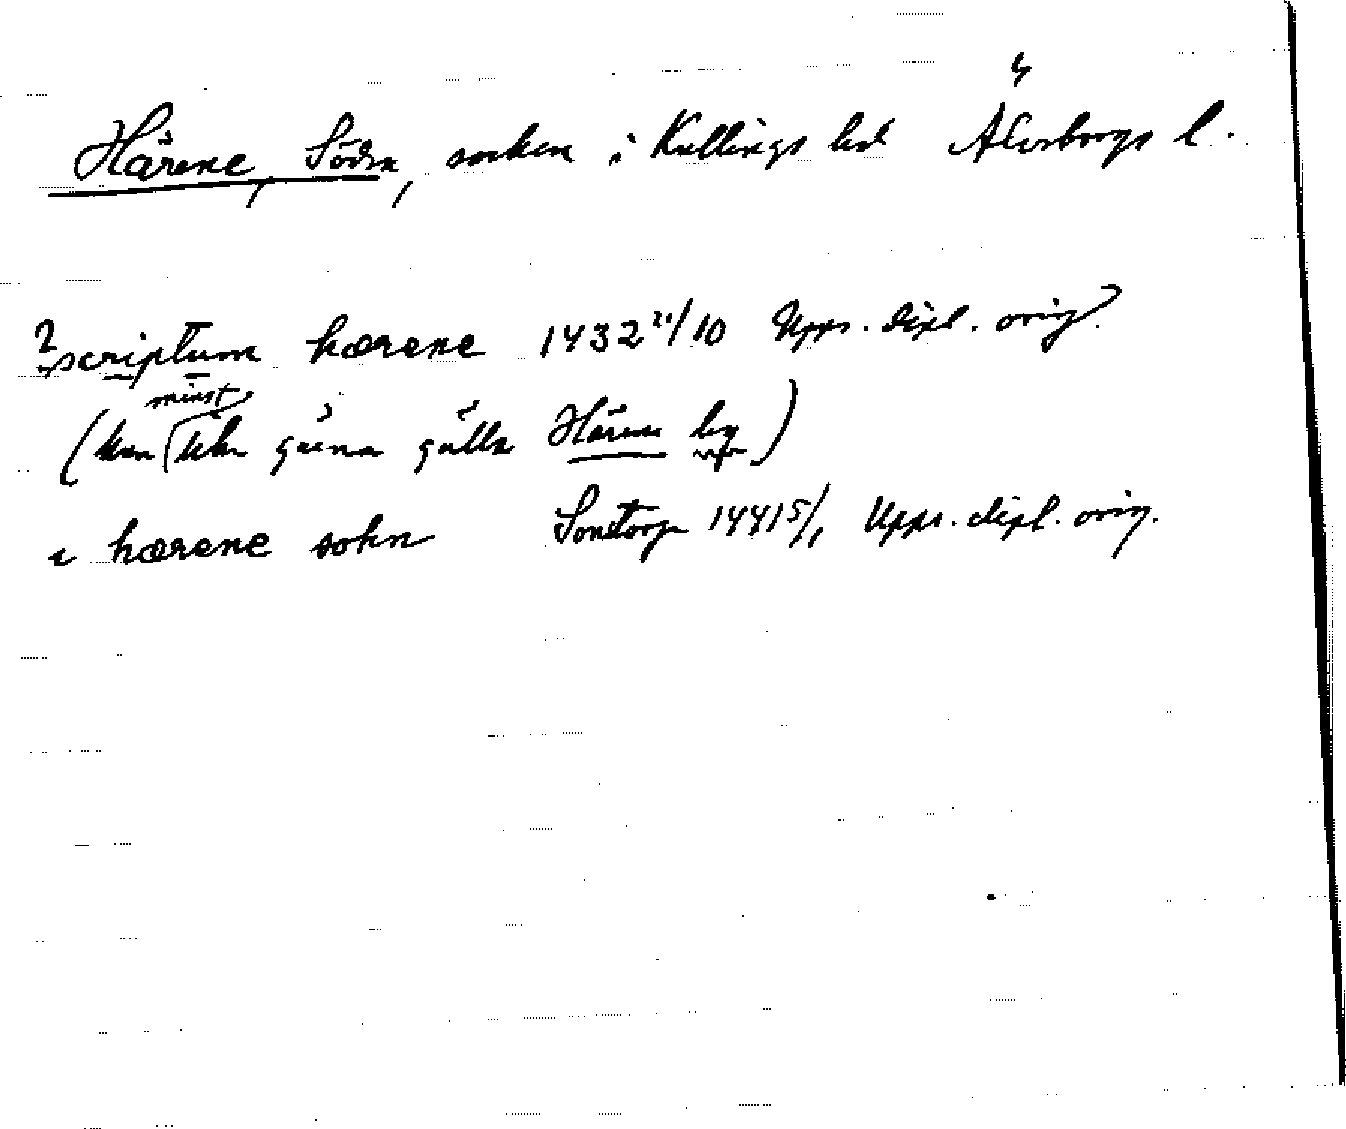 Härene, Södra, socken i Kullings hd Älvsborgs l.
? scriptum hærene 1432 21/10 Upps. dipl. orig.
minst
(kan lika gärna gälla Härene by)
i hærene sokn Sonstorp 1441 5/1 Upps. dipl. orig.